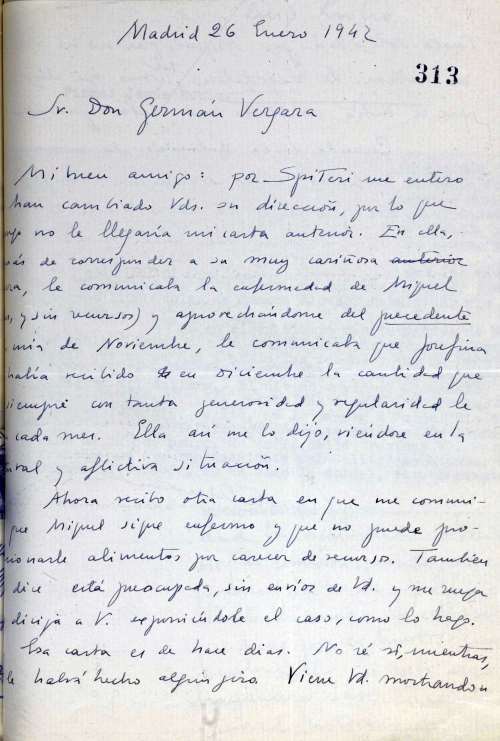 Madrid 26 Enero 1942
313
Sr. Don Germán Vergara
Mi buen amigo: por Spiteri me entero
han cambiado Vds. su dirección, por lo que
no le llegaría mi carta anterior. En ella,
de corresponder a su muy cariñosa anterior
le comunicaba la enfermedad de Miguel
y sin recursos) y aprovechándome del precedente
mía de Noviembre, le comunicaba que Josefina
había recibido en Diciembre la cantidad que
siempre con tanta generosidad y regularidad le
cada mes. Ella así me lo dijo, viéndose en la
y aflictiva situación.
Ahora recibo otra carta en que me comuni-
que Miguel sigue enfermo y que no puede pro-
cionarle alimentos por carecer de recursos. También
dice está preocupada, sin envíos de Vd. y me ruega
dirija a V. exponiéndole el caso, como lo hago.
Esa carta es de hace días. No sé si, mientras,
le habrá hecho algún giro. Viene Vd. mostrando